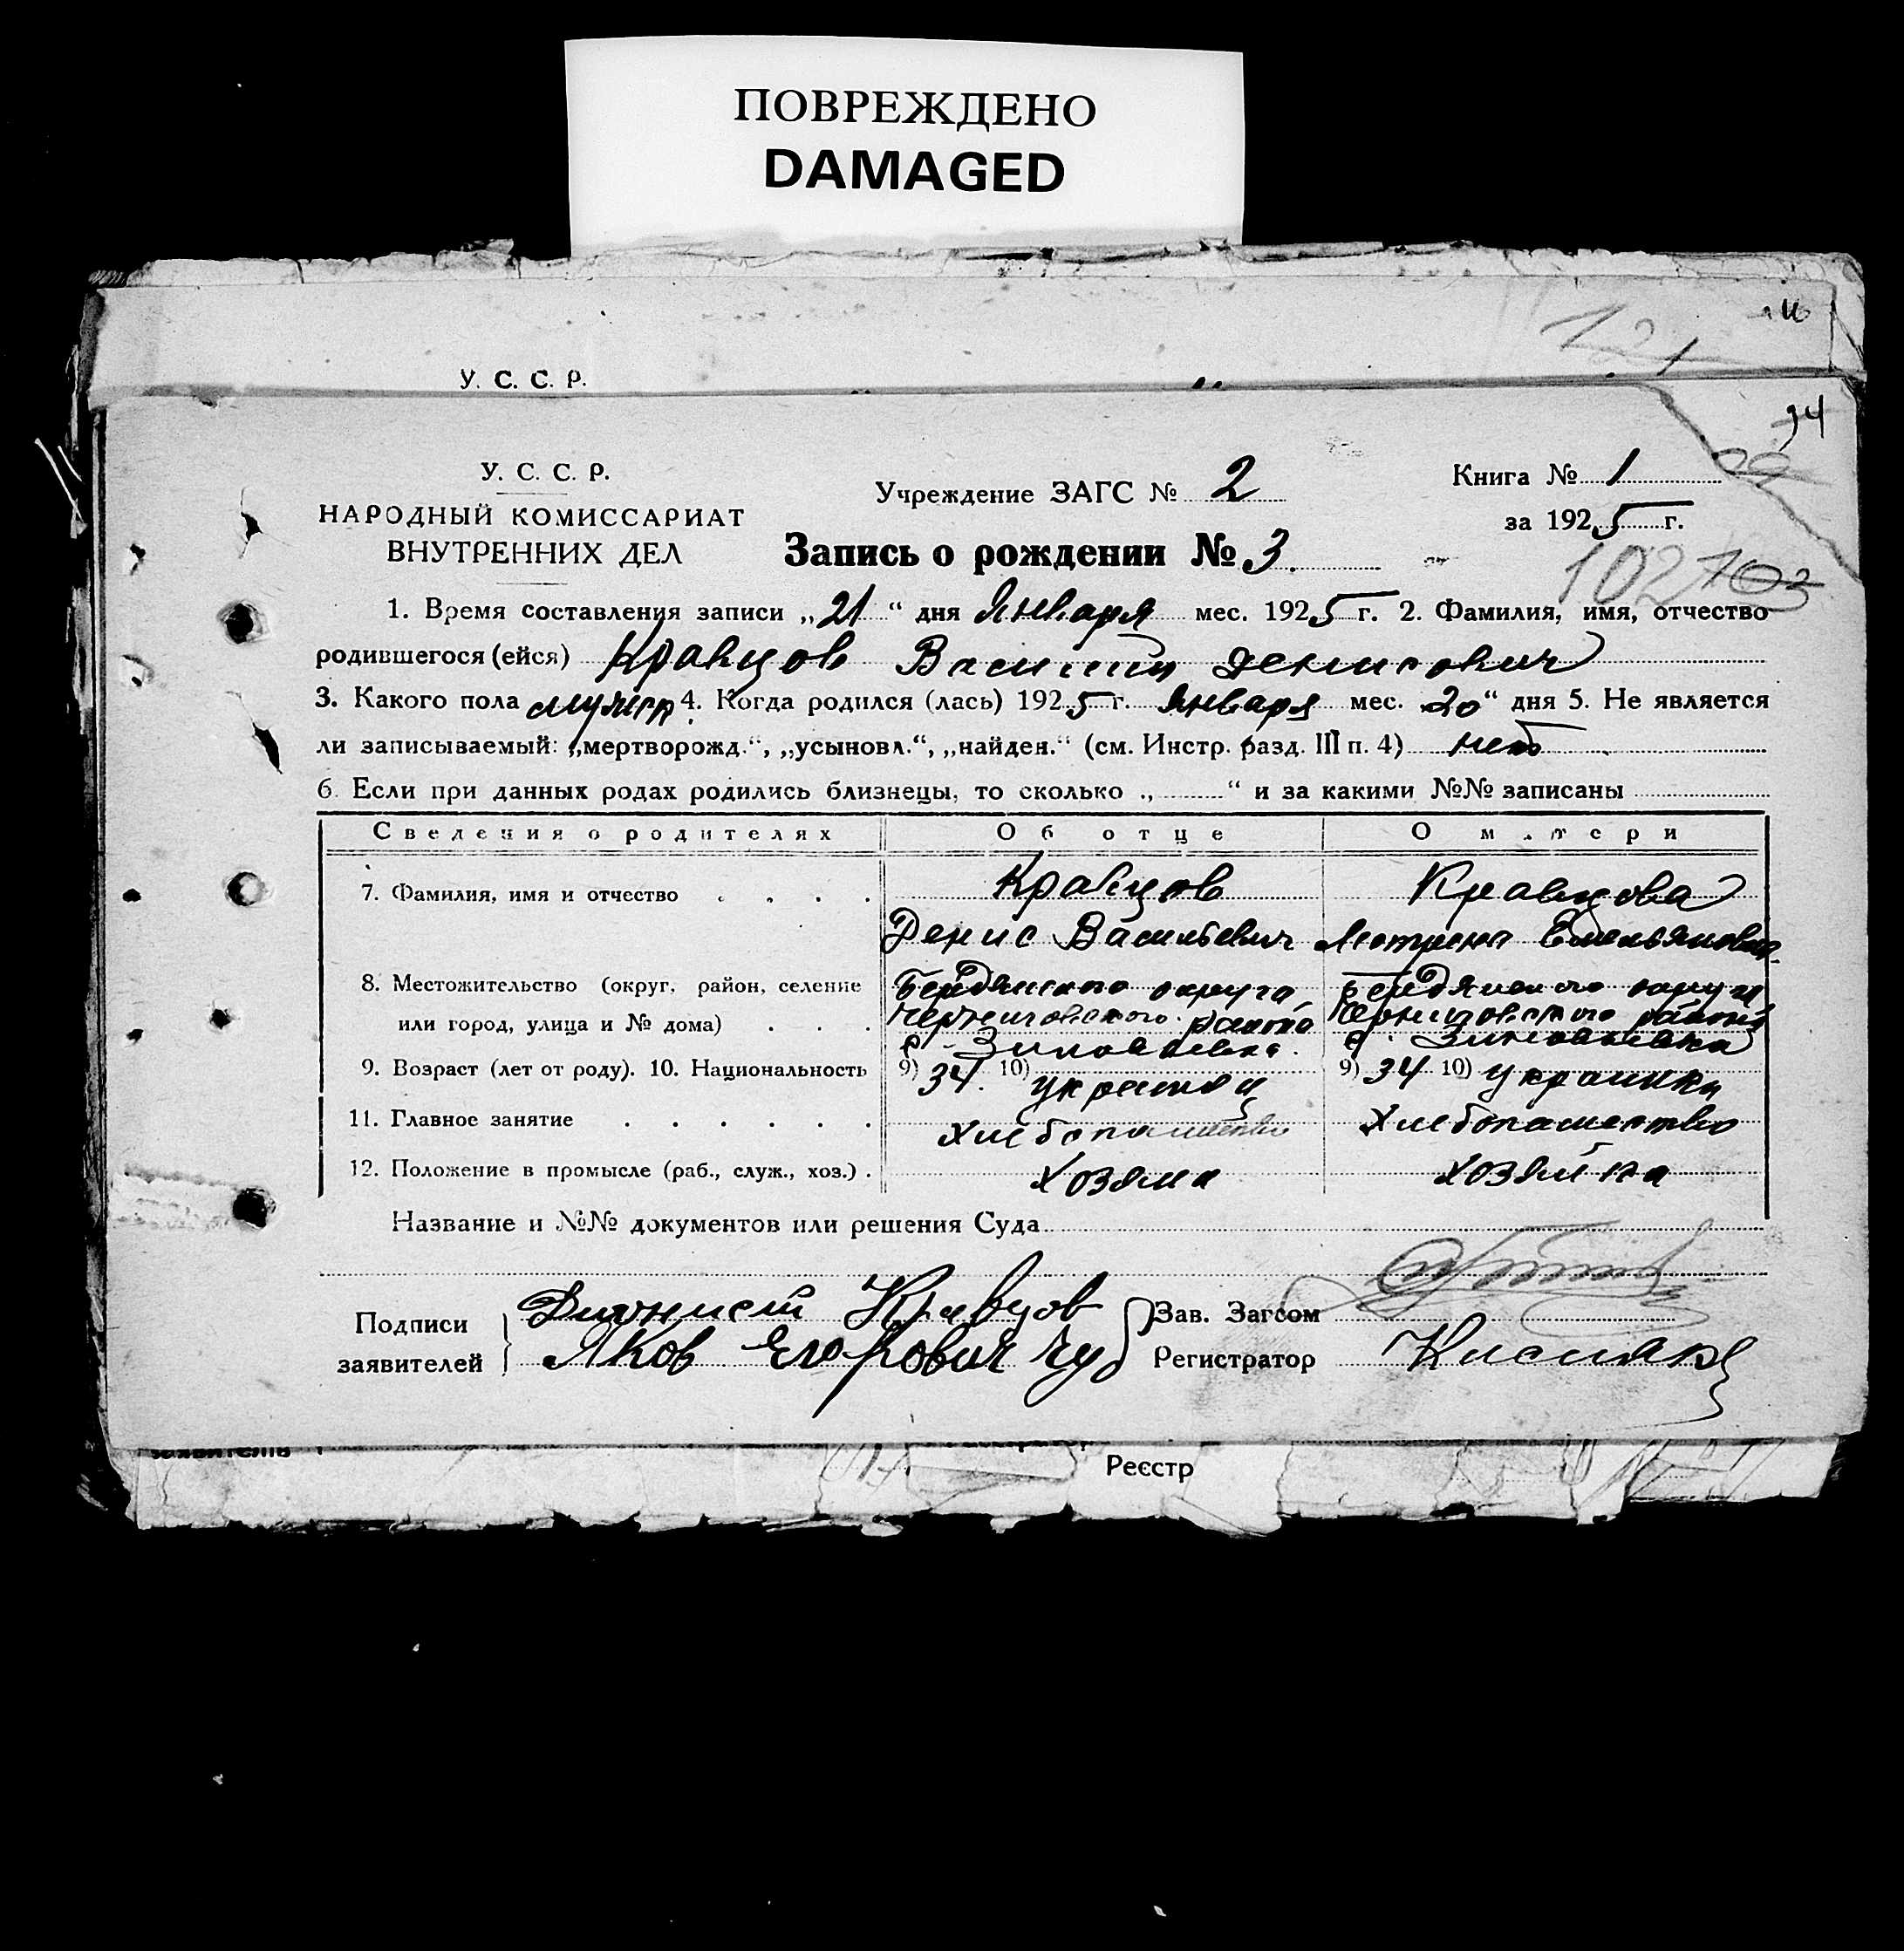 ПОВРЕЖДЕНО
DAMAGED
У. С. С. Р.
94
У. С. С. Р.
НАРОДНЫЙ КОМИССАРИАТ
ВНУТРЕННИХ ДЕЛ
Учреждение ЗАГС № 2
Книга № 1
за 1925 г.
Запись о рождении № 3
102 103
1. Время составления записи „21“ дня Января мес. 1925 г. 2. Фамилия, имя, отчество
родившегося (ейся) Кравцов Василий Денисович
3. Какого пола мужск 4. Когда родился (лась) 1925 г. Января мес. 20“ дня 5. Не является
ли записываемый: „мертворожд.“, „усыновл.“, „найден.“ (см. Инстр. разд. III п. 4) нет
6. Если при данных родах родились близнецы, то сколько „ “ и за какими №№ записаны
Сведения о родителях Об отце О матери
7. Фамилия, имя и отчество Кравцов Кравцова
Денис Васильевич Емельяновна
8. Местожительство (округ, район, селение Бердянского округа Бердянского округа
или город, улица и № дома) Черниговского района Черниговского района
с. с.
9. Возраст (лет от роду). 10. Национальность 9) 34 10) украинец 9) 34 10) украинка
11. Главное занятие Хлебопашество Хлебопашество
12. Положение в промысле (раб., служ., хоз.) Хозяин Хозяйка
Название и №№ документов или решения Суда
Подписи Дионисий Кравцов Зав. Загсом
заявителей Яков Егорович Чуб Регистратор
заявитель
Реестр